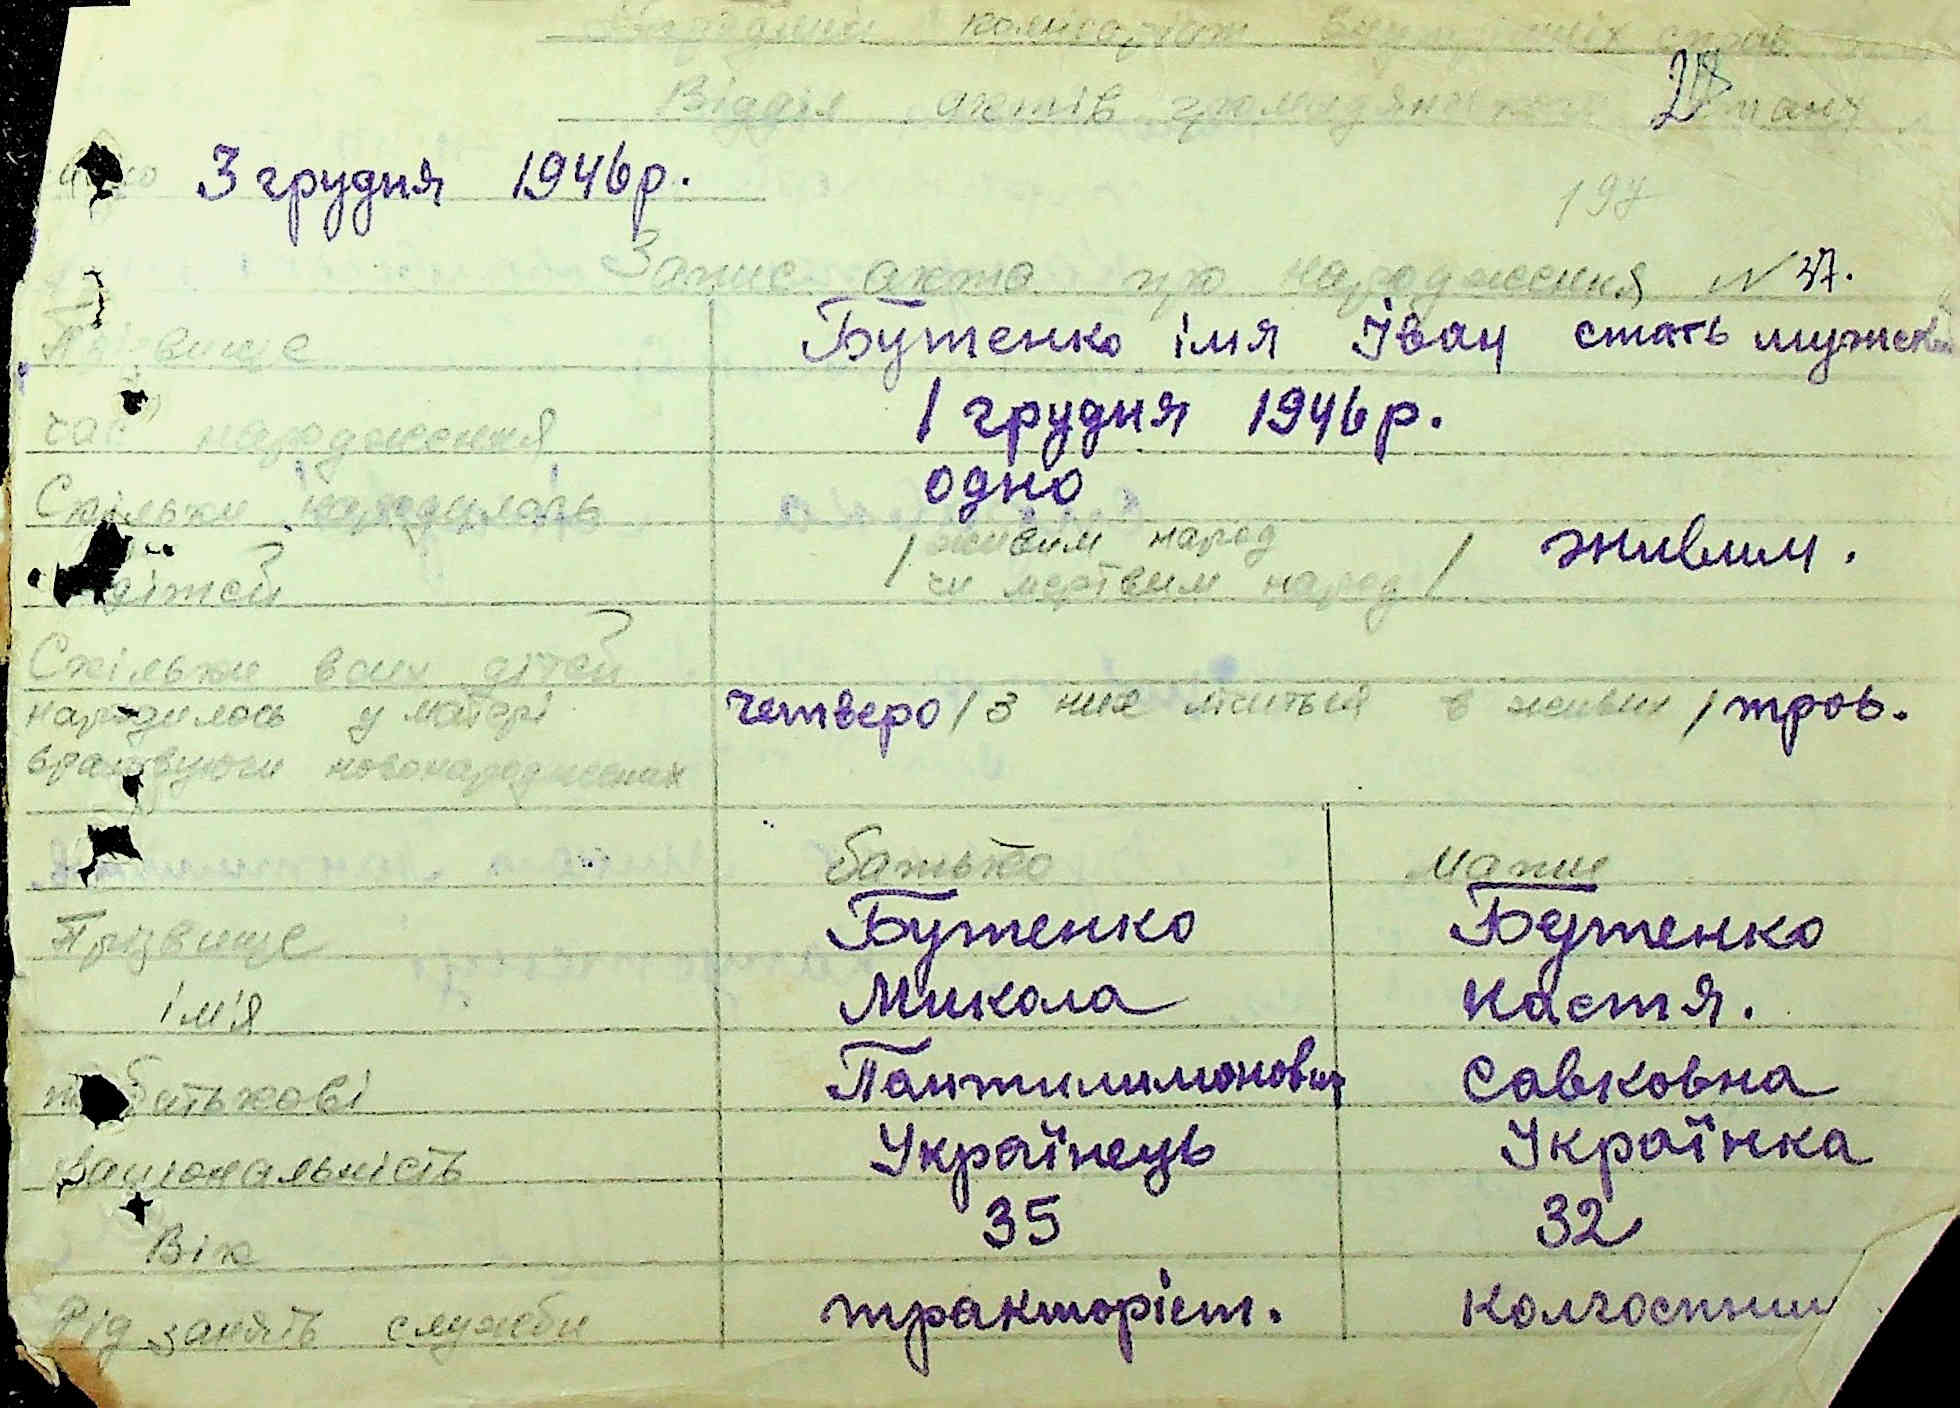 Народний комісаріат внутрішніх справ
Відділ актів громадянського стану
28
3 грудня 1946 р.
194
Запис акта про народження N 37.
Прізвище Бутенко імя Іван стать мужска
час народження 1 грудня 1946 р.
Скільки народилось одно
дітей / живим народ чи мертвим народ / живим.
Скільки всих дітей
народилось у матері четверо / з них лишться в живих / троє.
враховуючи новонароджених
батько мати
Прізвище Бутенко Бутенко
ім'я Микола Кастя.
по батькові Пантилимонович Савковна
національність Українець Українка
Вік 35 32
Рід занять служби тракторіст. колгоспниц